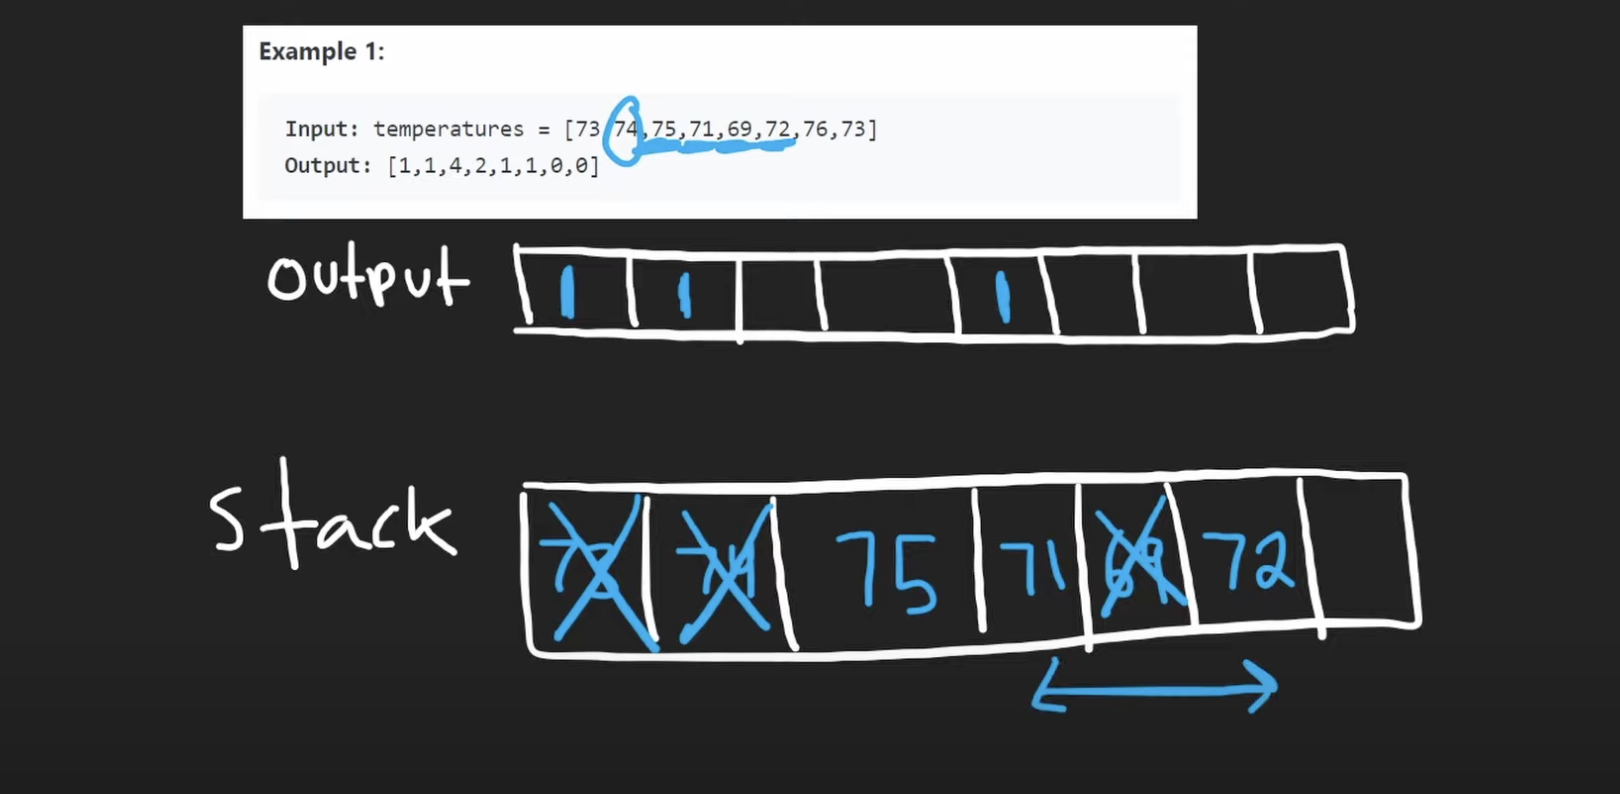 Example 1:
Input: temperatures = [73,74,75,71,69,72,76,73]
Output: [1,1,4,2,1,1,0,0]
output 1 1 1
Stack 73 74 75 71 69 72